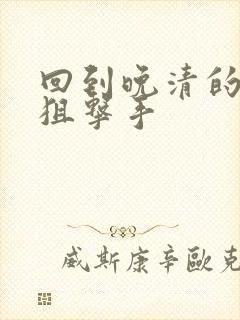 回到晚清的
狙擊手
威斯康辛歐克